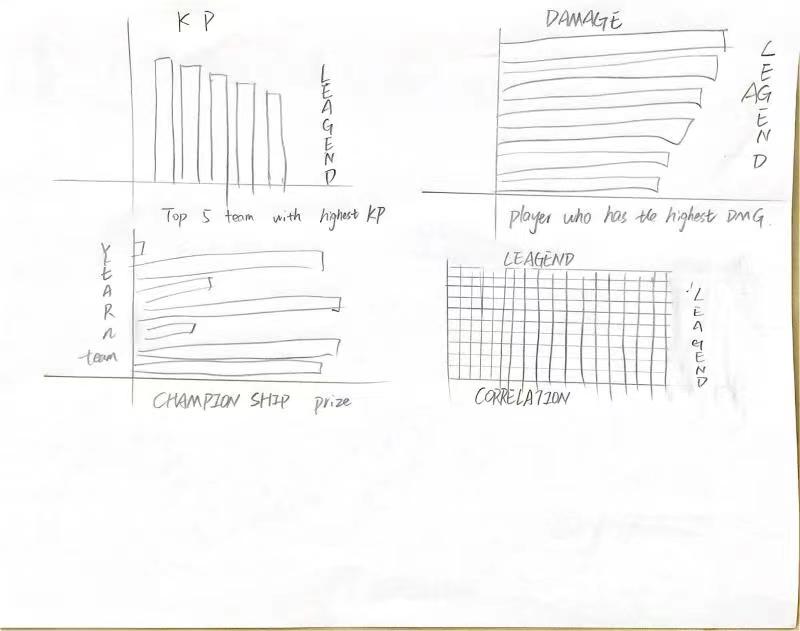 KP
LEAGEND
Top 5 team with highest KP
DAMAGE
LEAGEND
player who has the highest DMG.
YEAR n
team
CHAMPION SHIP prize
LEAGEND
LEAGEND
CORRELATION